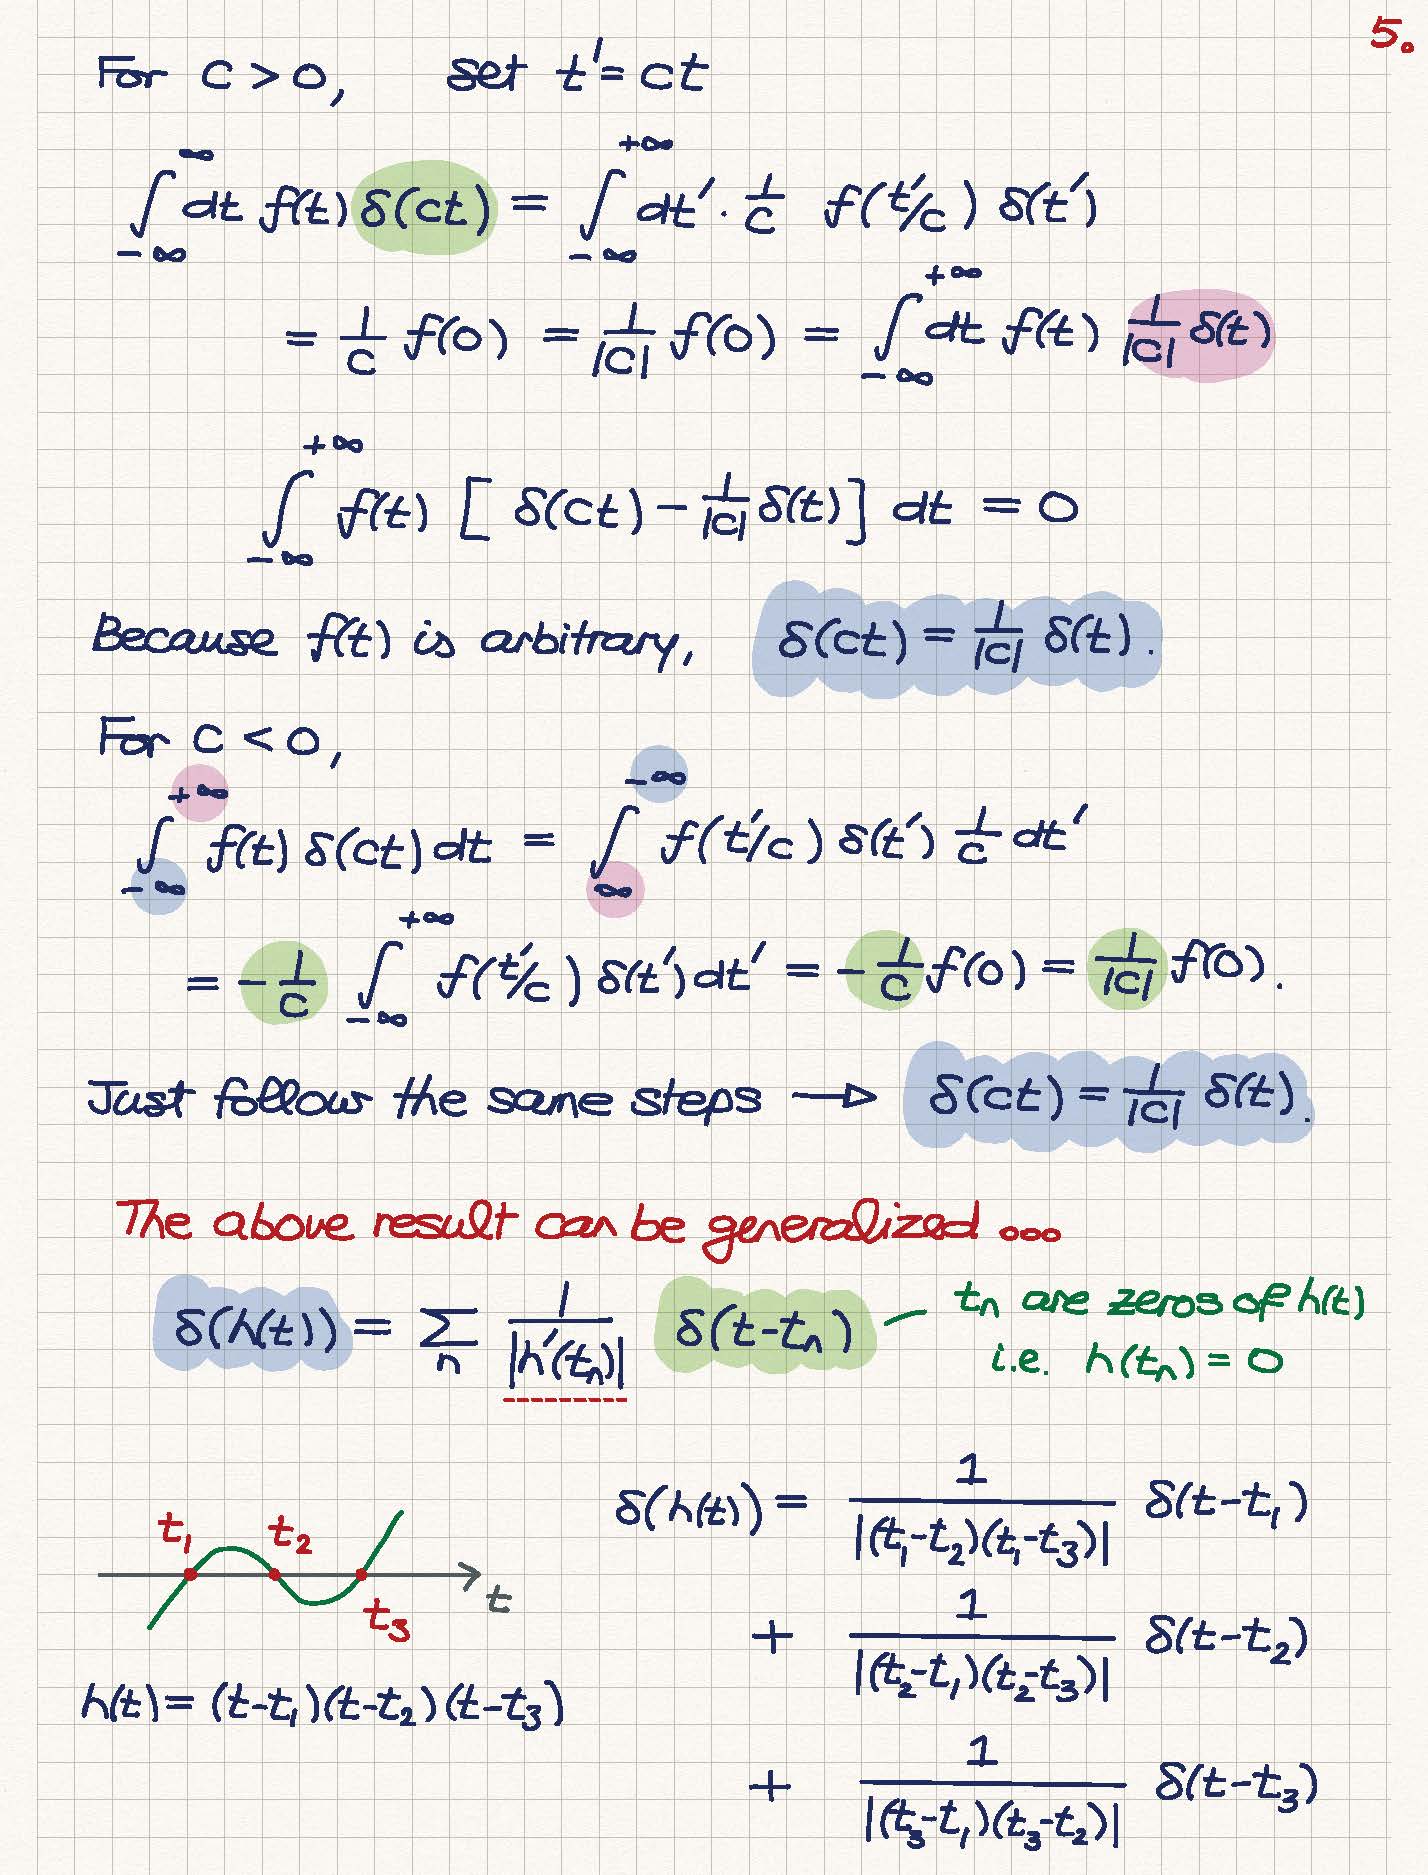 5.
For c > 0, set t' = ct
∫_{-∞}^{∞} dt f(t) δ(ct) = ∫_{-∞}^{+∞} dt' · 1/c f(t'/c) δ(t')
= 1/c f(0) = 1/|c| f(0) = ∫_{-∞}^{+∞} dt f(t) 1/|c| δ(t)
∫_{-∞}^{+∞} f(t) [ δ(ct) - 1/|c| δ(t) ] dt = 0
Because f(t) is arbitrary, δ(ct) = 1/|c| δ(t).
For c < 0,
∫_{-∞}^{+∞} f(t) δ(ct) dt = ∫_{∞}^{-∞} f(t'/c) δ(t') 1/c dt'
= -1/c ∫_{-∞}^{+∞} f(t'/c) δ(t') dt' = -1/c f(0) = 1/|c| f(0).
Just follow the same steps → δ(ct) = 1/|c| δ(t).
The above result can be generalized ...
δ(h(t)) = Σ_n 1/|h'(t_n)| δ(t-t_n)
t_n are zeros of h(t)
i.e. h(t_n) = 0
t_1 t_2 t_3 t
h(t) = (t-t_1)(t-t_2)(t-t_3)
δ(h(t)) = 1/|(t_1-t_2)(t_1-t_3)| δ(t-t_1)
+ 1/|(t_2-t_1)(t_2-t_3)| δ(t-t_2)
+ 1/|(t_3-t_1)(t_3-t_2)| δ(t-t_3)